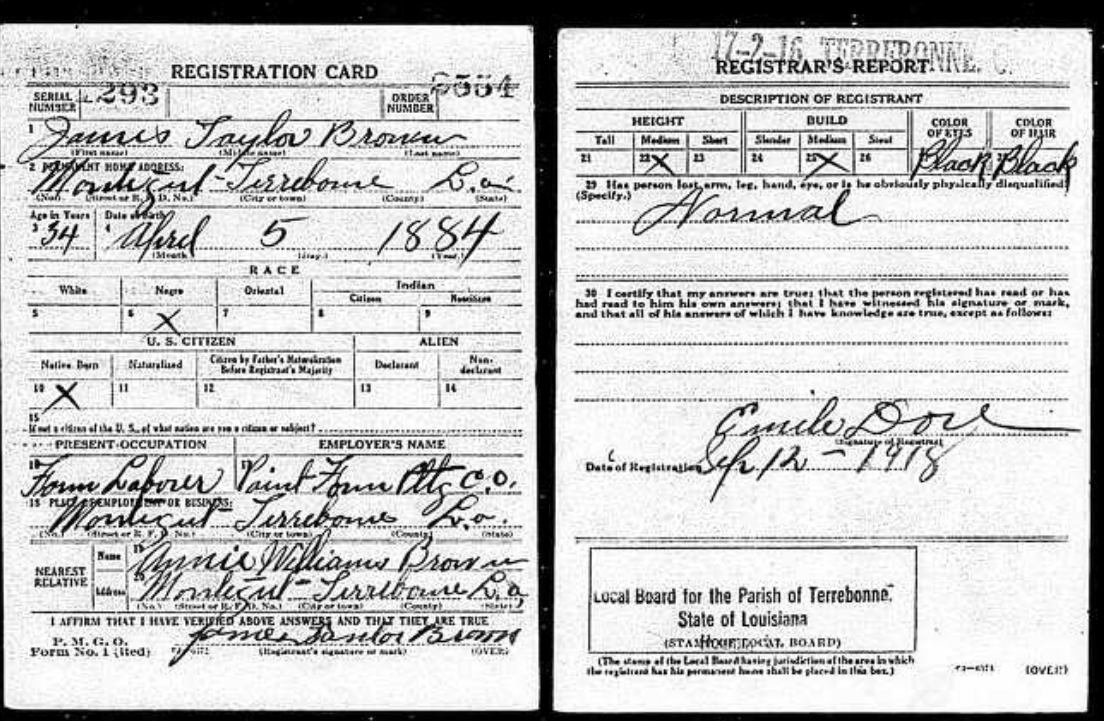 REGISTRATION CARD
SERIAL NUMBER 293 ORDER NUMBER
1 James Taylor Brown
(First name) (Middle name) (Last name)
2 PERMANENT HOME ADDRESS:
Montegut - Terrebonne La.
(No.) (Street or R. F. D. No.) (City or town) (County) (State)
Age in Years Date of Birth
3 34 4 April 5 1884
(Month) (Day) (Year)
RACE
White Negro Oriental Indian
Citizen Noncitizen
5 6 X 7 8 9
U. S. CITIZEN ALIEN
Native Born Naturalized Citizen by Father's Naturalization Before Registrant's Majority Declarant Non-declarant
10 X 11 12 13 14
15
If not a citizen of the U. S., of what nation are you a citizen or subject?
PRESENT OCCUPATION EMPLOYER'S NAME
16 Farm Laborer 17 Point Farm Pltg Co.
18 PLACE OF EMPLOYMENT OR BUSINESS:
Montegut Terrebonne La.
(No.) (Street or R. F. D. No.) (City or town) (County) (State)
NEAREST RELATIVE Name 19 Annie Williams Brown
Address 20 Montegut - Terrebonne La,
(No.) (Street or R. F. D. No.) (City or town) (County) (State)
I AFFIRM THAT I HAVE VERIFIED ABOVE ANSWERS AND THAT THEY ARE TRUE
P. M. G. O.
Form No. 1 (Red) James Taylor Brown
(Registrant's signature or mark) (OVER)
17-2-16 TERREBONNE. C.
REGISTRAR'S REPORT
DESCRIPTION OF REGISTRANT
HEIGHT BUILD COLOR OF EYES COLOR OF HAIR
Tall Medium Short Slender Medium Stout
21 22 X 23 24 25 X 26 Black Black
29 Has person lost arm, leg, hand, eye, or is he obviously physically disqualified?
(Specify.) Normal
30 I certify that my answers are true; that the person registered has read or has
had read to him his own answers; that I have witnessed his signature or mark,
and that all of his answers of which I have knowledge are true, except as follows:
Emile Dore
(Signature of Registrar)
Date of Registration Sep 12 - 1918
Local Board for the Parish of Terrebonne.
State of Louisiana
(STAMP OF LOCAL BOARD)
(The stamp of the Local Board having jurisdiction of the area in which
the registrant has his permanent home shall be placed in this box.)
(OVER)